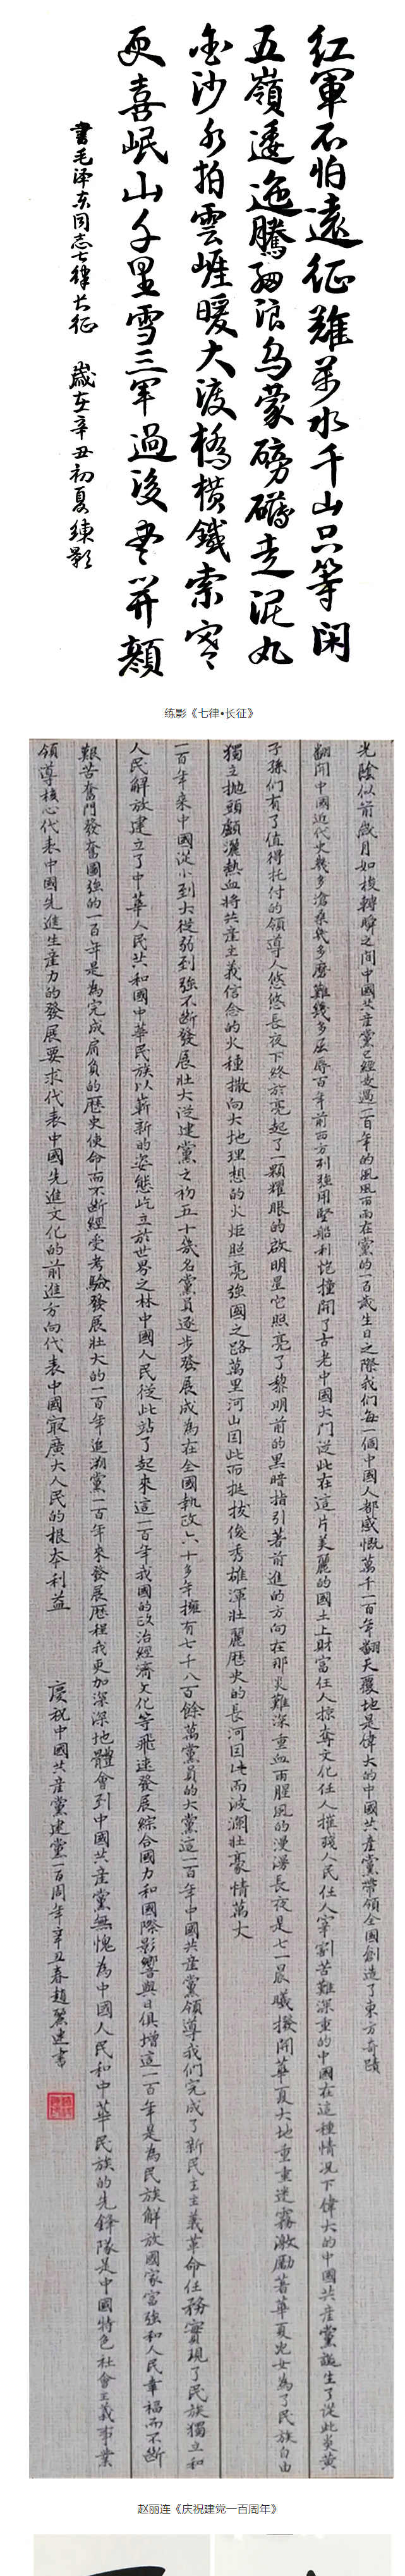 红軍不怕遠征難萬水千山只等闲
五嶺逶迤騰細浪乌蒙磅礴走泥丸
金沙水拍雲崖暖大渡橋横鐵索寒
更喜岷山千里雪三军過後尽开顏
書毛泽东同志七律长征 歲在辛丑初夏練影
练影《七律•长征》
光陰似箭歲月如梭轉瞬之间中國共産黨已經走過一百年的風風雨雨在黨的一百歲生日之際我们每一個中國人都感慨萬千一百年翻天覆地是偉大的中國共産黨带領全國創造了東方奇蹟
翻開中國近代史幾多滄桑幾多磨難幾多屈辱百年前西方列强用堅船利炮撞開了古老中國大门從此在這片美麗的國土上財富任人掠奪文化任人摧殘人民任人宰割苦難深重的中國在這種情况下偉大的中國共産黨誕生了從此炎黄
子孫们有了值得托付的領導人悠悠長夜下終於亮起了一顆耀眼的啟明星它照亮了黎明前的黑暗指引著前進的方向在那災難深重血雨腥風的漫漫長夜是七一晨曦撥開華夏大地重重迷霧激勵著華夏兒女為了民族自由
獨立抛頭顱灑熱血将共産主義信念的火種撒向大地理想的火炬照亮強國之路萬里河山因此而挺拔俊秀雄渾壯麗歷史的長河因此而波瀾壯豪情萬丈
一百年來中國從小到大從弱到強不断發展壯大從建黨之初五十幾名黨員逐步發展成為在全國執政六十多年擁有七千八百餘萬黨員的大黨這一百年中國共産黨領導我们完成了新民主主義革命任務實現了民族獨立和
人民解放建立了中華人民共和國中華民族以嶄新的姿態屹立於世界之林中國人民從此站了起來這一百年我國的政治經濟文化等飛速發展綜合國力和國際影響與日俱增這一百年是為民族解放國家富強和人民幸福而不断
艱苦奮鬥發奮圖強的一百年是為完成肩負的歷史使命而不断經受考驗發展壯大的一百年追溯黨一百年來發展歷程我更加深深地體會到中國共産黨無愧為中國人民和中華民族的先鋒隊是中國特色社會主義事業
領導核心代表中國先進生産力的發展要求代表中國先進文化的前進方向代表中國最廣大人民的根本利益 慶祝中國共産黨建黨一百周年辛丑春趙麗連書
赵丽连《庆祝建党一百周年》